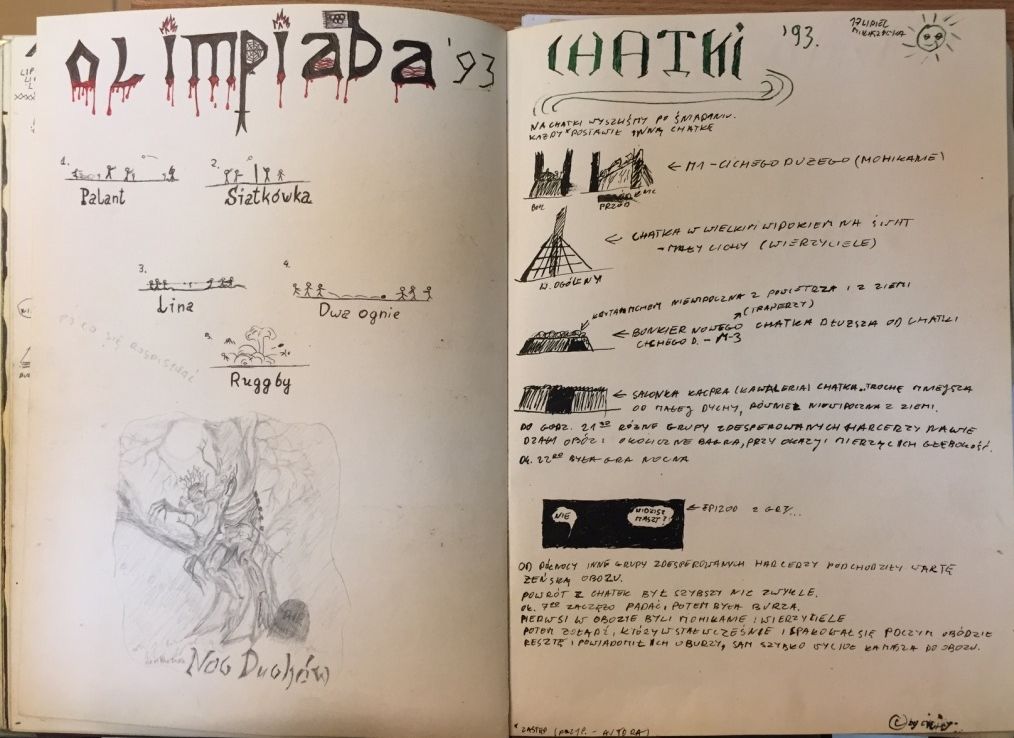 OLIMPIADA '93
1.
Palant
2.
Siatkówka
3.
Lina
4.
Dwa ognie
5.
Ruggby
PO CO SIĘ ROZPISYWAĆ
Noc Duchów
CHATKI '93.
17 LIPIEC
NA CHATKI WYSZLIŚMY PO ŚNIADANIU.
KAŻDY* POSTAWIŁ INNĄ CHATKĘ
← M1 - CICHEGO DUŻEGO (MOHIKANIE)
BOK
PRZÓD
← CHATKA W WIELKIM WIDOKIEM NA ŚWIAT
- MAŁY CICHY (WIERZYCIELE)
W. OGÓLNY
NIEWIDOCZNA Z POWIETRZA I Z ZIEMI
(TRAPERZY)
← BUNKIER NOWEGO CHATKA DŁUŻSZA OD CHATKI
CICHEGO D. - M-3
← SALONKA KACPRA (KAWALERIA) CHATKA TROCHĘ MNIEJSZA
OD MAŁEJ DYCHY, RÓWNIEŻ NIEWIDOCZNA Z ZIEMI.
DO GODZ. 21³⁰ RÓŻNE GRUPY ZDESPEROWANYCH HARCERZY NAWIE
DZAŁY OBÓZ I OKOLICZNE BAGRA, PRZY OKAZJI MIERZĄC ICH GŁĘBOKOŚĆ.
OK. 22⁰⁰ BYŁA GRA NOCNA
NIE
WIDZISZ
MASZT?
← EPIZOD Z GRY...
OD PÓŁNOCY INNE GRUPY ZDESPEROWANYCH HARCERZY PODCHODZIŁY WARTĘ
ŻEŃSKĄ OBOZU.
POWRÓT Z CHATEK BYŁ SZYBSZY NIŻ ZWYKLE.
OK. 7⁰⁰ ZACZĘŁO PADAĆ, POTEM BYŁA BURZA.
PIERWSI W OBOZIE BYLI MOHIKANIE I WIERZYCIELE
POTEM ŻOŁĄDŹ, KTÓRY WSTAŁ WCZEŚNIE I SPAKOWAŁ SIĘ POCZYM OBUDZIŁ
RESZTĘ I POWIADOMIŁ ICH O BURZY, SAM SZYBKO DO OBOZU.
* ZASTĘP (PRZYP. - AUTORA)
© by